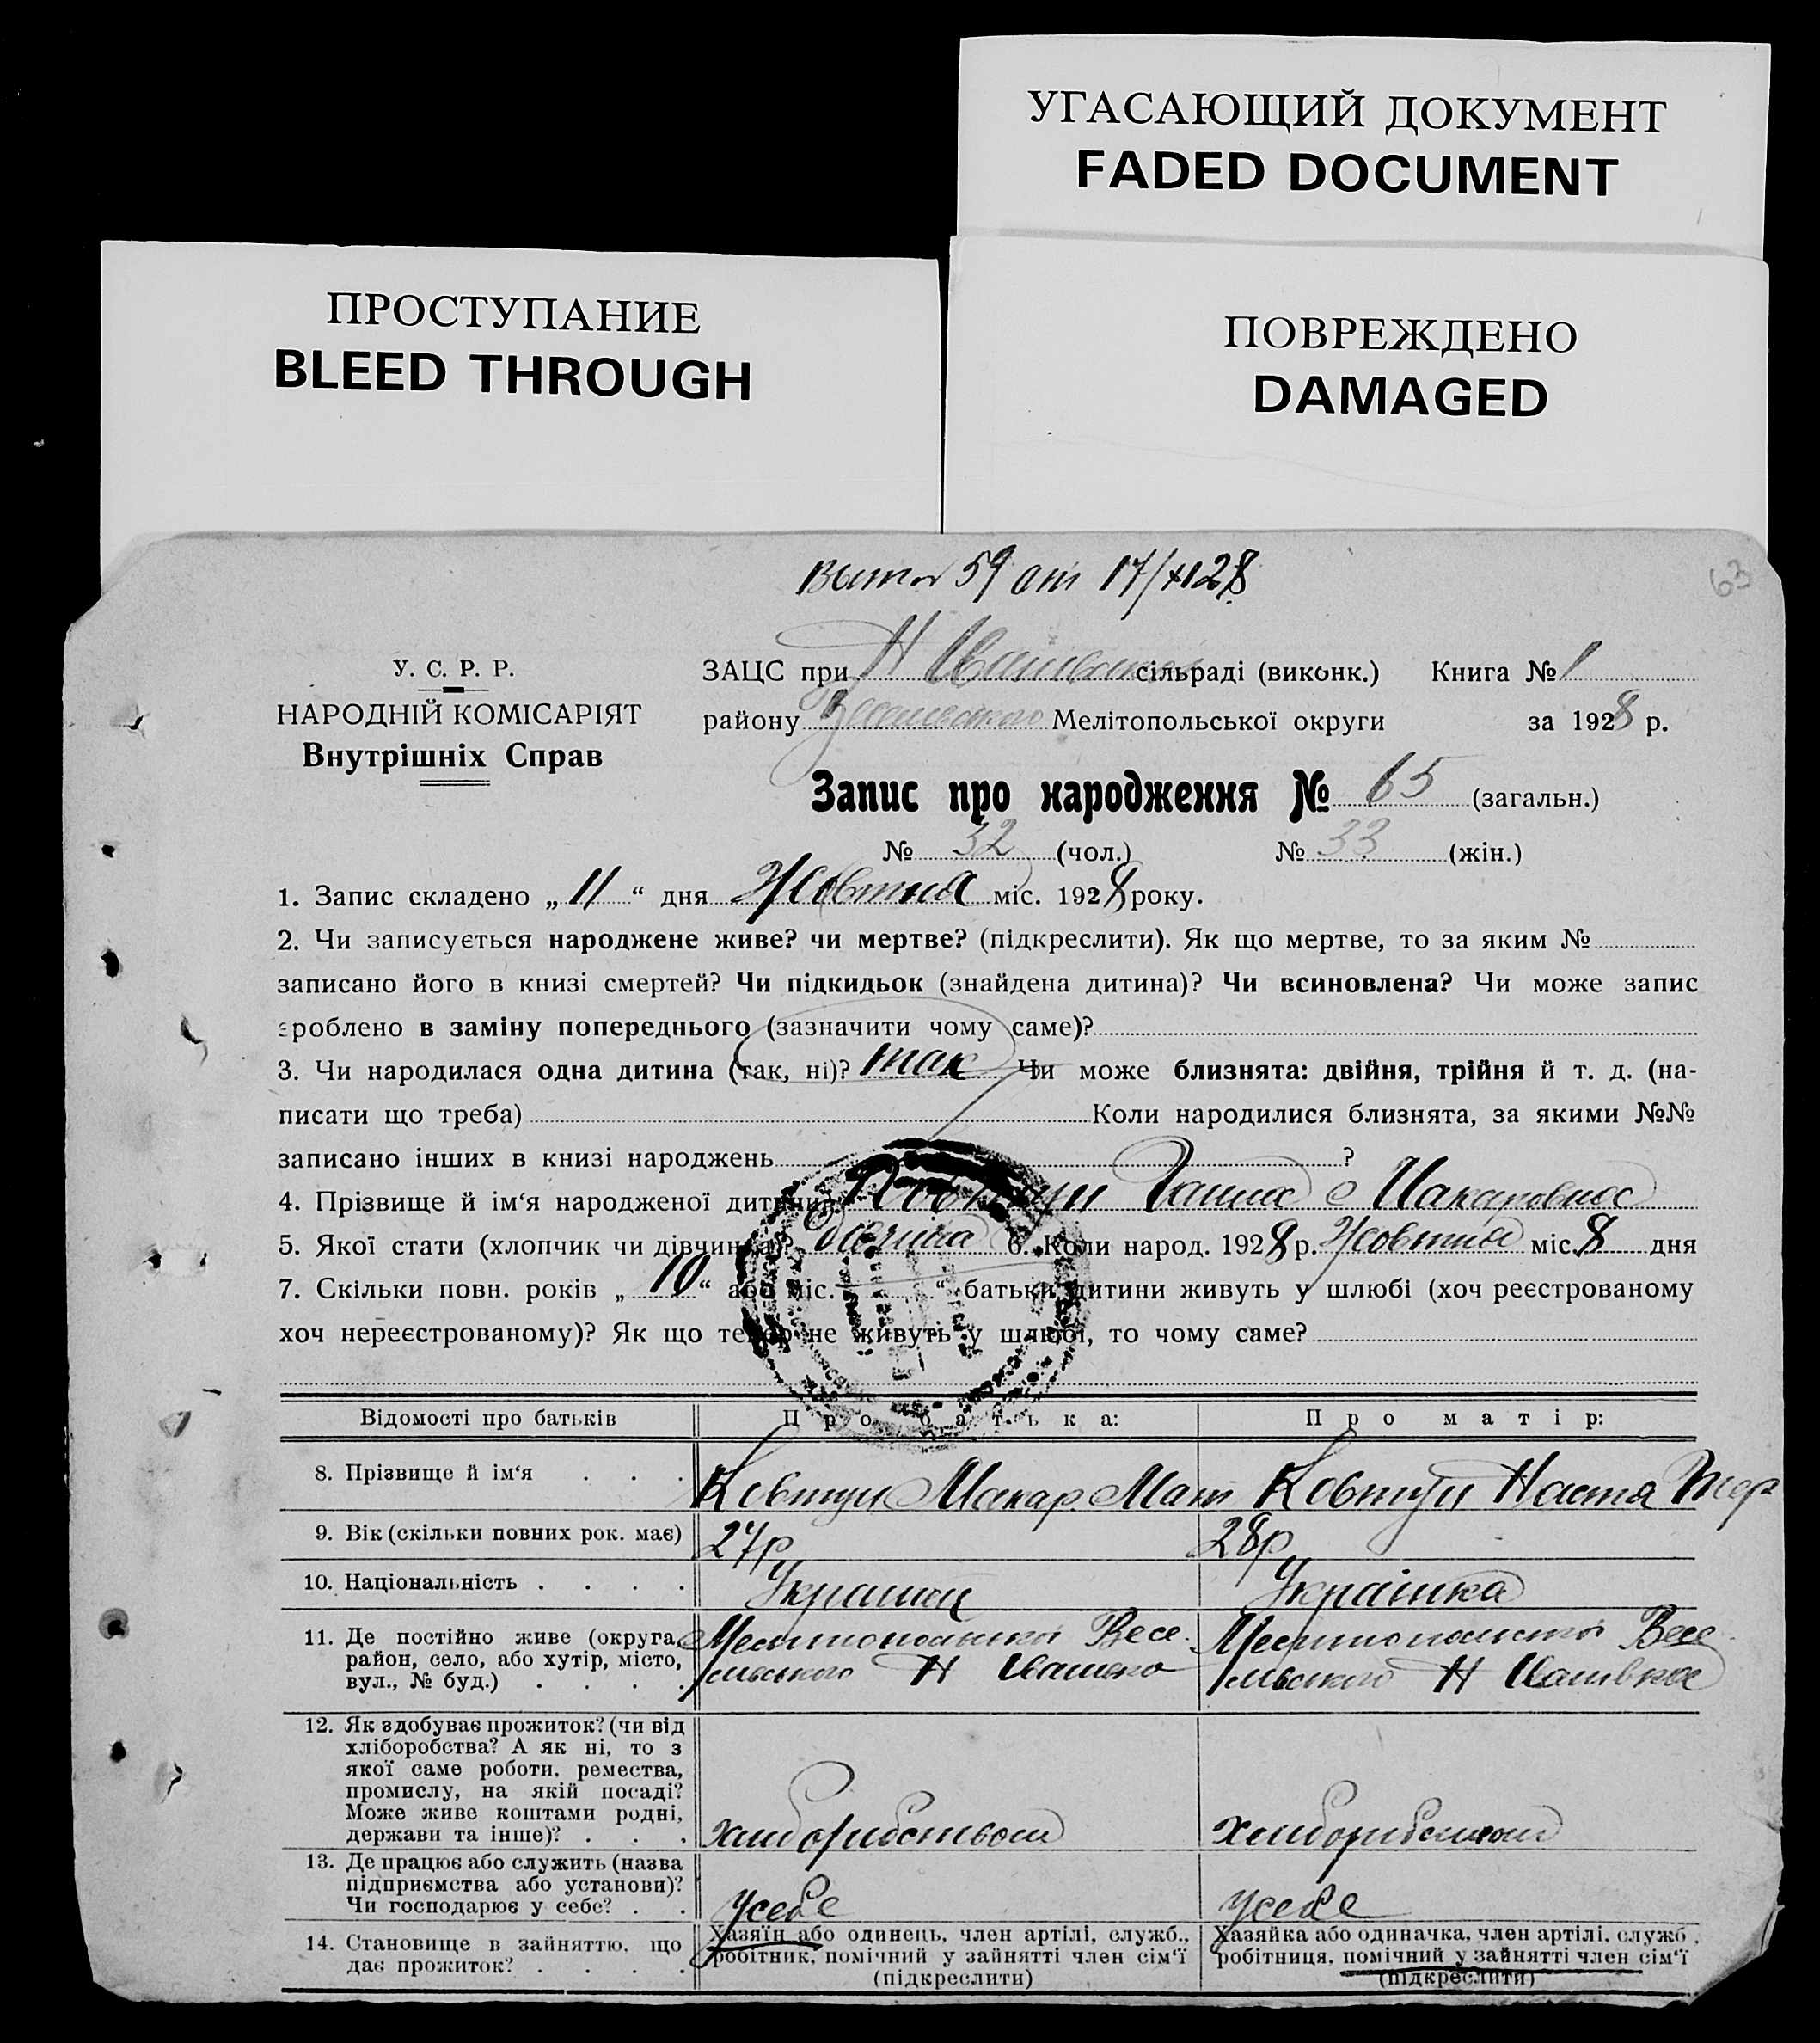 УГАСАЮЩИЙ ДОКУМЕНТ
FADED DOCUMENT
ПРОСТУПАНИЕ
BLEED THROUGH
ПОВРЕЖДЕНО
DAMAGED
59 от 17/X 28
63
У. С. Р. Р.
НАРОДНІЙ КОМІСАРІЯТ
Внутрішніх Справ
ЗАЦС при Н сільраді (виконк.) Книга № 1
району Мелітопольської округи за 1928 р.
Запис про народження № 65 (загальн.)
№ 32 (чол.) № 33 (жін.)
1. Запис складено „ 11 “ дня Жовтня міс. 1928 року.
2. Чи записується народжене живе? чи мертве? (підкреслити). Як що мертве, то за яким №
записано його в книзі смертей? Чи підкидьок (знайдена дитина)? Чи всиновлена? Чи може запис
зроблено в заміну попереднього (зазначити чому саме)?
3. Чи народилася одна дитина (так, ні)? так Чи може близнята: двійня, трійня й т. д. (на-
писати що треба) Коли народилися близнята, за якими №№
записано інших в книзі народжень ?
4. Прізвище й ім‘я народженої дитини Ковтун Ганна Макаровна
5. Якої стати (хлопчик чи дівчинка)? 6. Коли народ. 1928 р. Жовтня міс. 8 дня
7. Скільки повн. років „ 10 “ або міс. “ батьки дитини живуть у шлюбі (хоч реєстрованому
хоч нереєстрованому)? Як що тепер не живуть у шлюбі, то чому саме?
Відомості про батьків Про батька: Про матір:
8. Прізвище й ім‘я . . . Ковтун Макар Мат Ковтун Настя
9. Вік (скільки повних рок. має) 27р 28р
10. Національність . . . . Украинец Українка
11. Де постійно живе (округа, Весе- Весе-
район, село, або хутір, місто, льського Н Ивановка льського Н
вул., № буд.) . . . .
12. Як здобуває прожиток? (чи від
хліборобства? А як ні, то з
якої саме роботи, ремества,
промислу, на якій посаді?
Може живе коштами родні,
держави та інше)? . . . хліборобством хліборобством
13. Де працює або служить (назва
підприємства або установи)?
Чи господарює у себе? . . усебе усебе
14. Становище в зайняттю, що Хазяїн або одинець, член артілі, служб., Хазяйка або одиначка, член артілі, служб.,
дає прожиток? . . . . робітник, помічний у зайнятті член сім‘ї робітниця, помічний у зайнятті член сім‘ї
(підкреслити) (підкреслити)